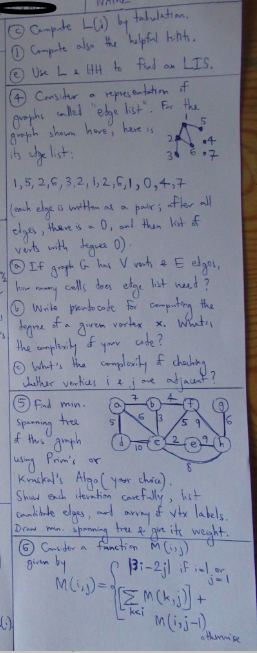 NAME
(c) Compute L(j) by tabulation.
(d) Compute also the helpful hints.
(e) Use L & HH to find an LIS.
(4) Consider a representation of
graphs called "edge list". For the
graph shown here, here is
its edge list:
1 5 2 4 3 6 7
1,5,2,6,3,2,1,2,6,1,0,4,7
(each edge is written as a pair; after all
edges, there is a 0, and then list of
verts with degree 0).
(a) If graph G has V verts & E edges,
how many cells does edge list need?
(b) Write pseudocode for computing the
degree of a given vertex x. What's
the complexity of your code?
(c) What's the complexity of checking
whether vertices i & j are adjacent?
(5) Find min.
spanning tree
of this graph
using Prim's or
Kruskal's Algo (your choice).
a 7 b 4 f g
5 6 3 5 9 6
d 10 c 2 e 9 h
8
Show each iteration carefully, list
candidate edges, and array of vtx labels.
Draw min. spanning tree & give its weight.
(6) Consider a function M(i,j)
given by
M(i,j) = { |3i-2j| if i=1 or j=1
[∑ k<i M(k,j)] +
M(i,j-1)
otherwise